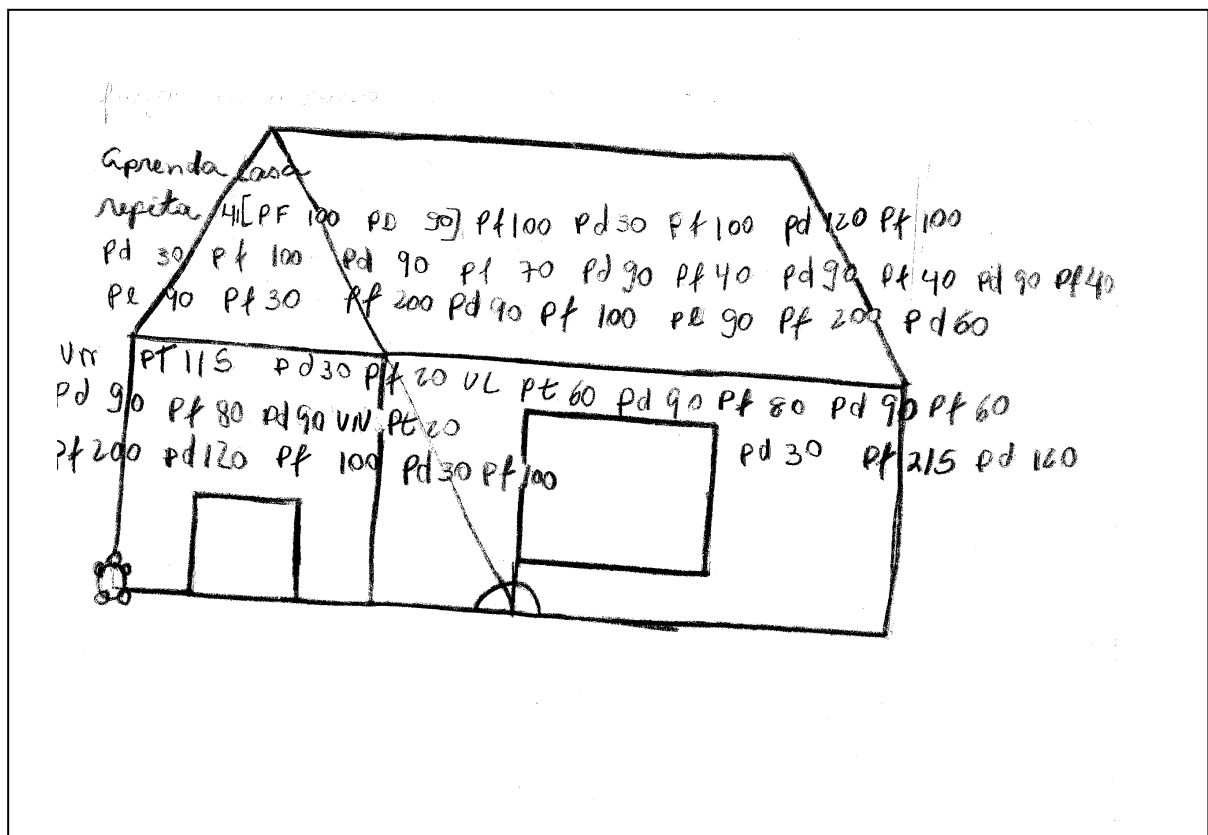 aprenda casa
repita 4[PF 100 PD 90] Pf 100 Pd 30 Pf 100 pd 120 Pf 100
Pd 30 Pf 100 Pd 90 pf 70 Pd 90 Pf 40 pd 90 Pf 40 pd 90 Pf 40
Pe 90 Pf 30 Pf 200 Pd 90 Pf 100 pe 90 Pf 200 Pd 60
PT 115 Pd 30 Pf 20 UL Pt 60 Pd 90 Pf 80 Pd 90 Pf 60
Pd 90 Pf 80 Pd 90 UN Pt 20
Pf 200 Pd 120 Pf 100 Pd 30 Pf 100 Pd 30 Pf 215 Pd 160